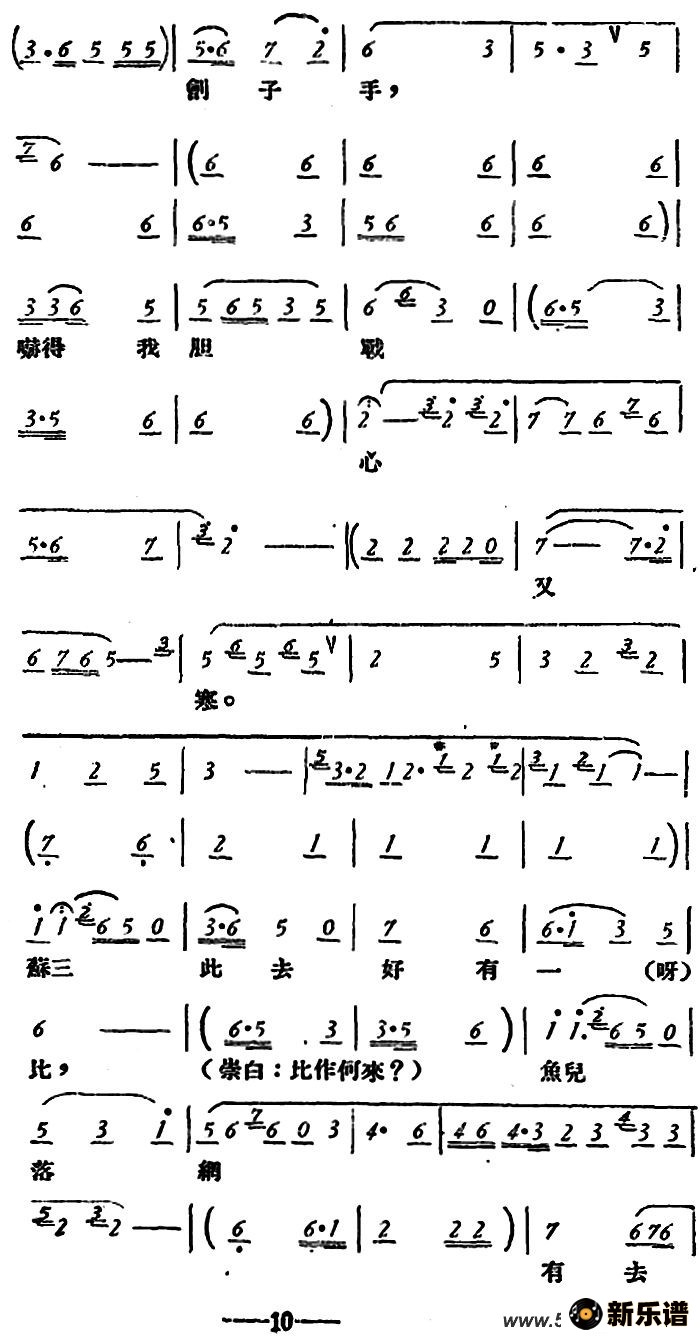 (3·6 5 5 5) | 5·6 7 2 | 6 3 | 5·3 V 5 |
劊 子 手，
7 6 —— | (6 6 | 6 6 | 6 6 |
6 6 | 6·5 3 | 5 6 6 | 6 6) |
3 3 6 5 | 5 6 5 3 5 | 6 6 3 0 | (6·5 3 |
嚇得 我 胆 戰
3·5 6 | 6 6) | 2 — 3 2 3 2 | 7 7 6 7 6 |
心
5·6 7 | 3 2 —— | (2 2 2 2 0 | 7 — 7·2 |
又
6 7 6 5 — 3 | 5 6 5 6 5 V | 2 5 | 3 2 3 2 |
寒。
1 2 5 | 3 —— | 5 3·2 1 2· 1 2 1 2 | 3 1 2 1 1 — |
(7 6 | 2 1 | 1 1 | 1 1) |
1 1 2 6 5 0 | 3·6 5 0 | 7 6 | 6·1 3 5 |
蘇三 此 去 好 有 一 (呀)
6 —— | (6·5 3 | 3·5 6) | 1 1· 2 6 5 0 |
比， (崇白：比作何來？) 魚兒
5 3 1 | 5 6 7 6 0 3 | 4· 6 | 4 6 4·3 2 3 4 3 3 |
落 網
5 2 3 2 — | (6 6·1 | 2 2 2) | 7 6 7 6 |
有 去
—10—
www.5
新乐谱